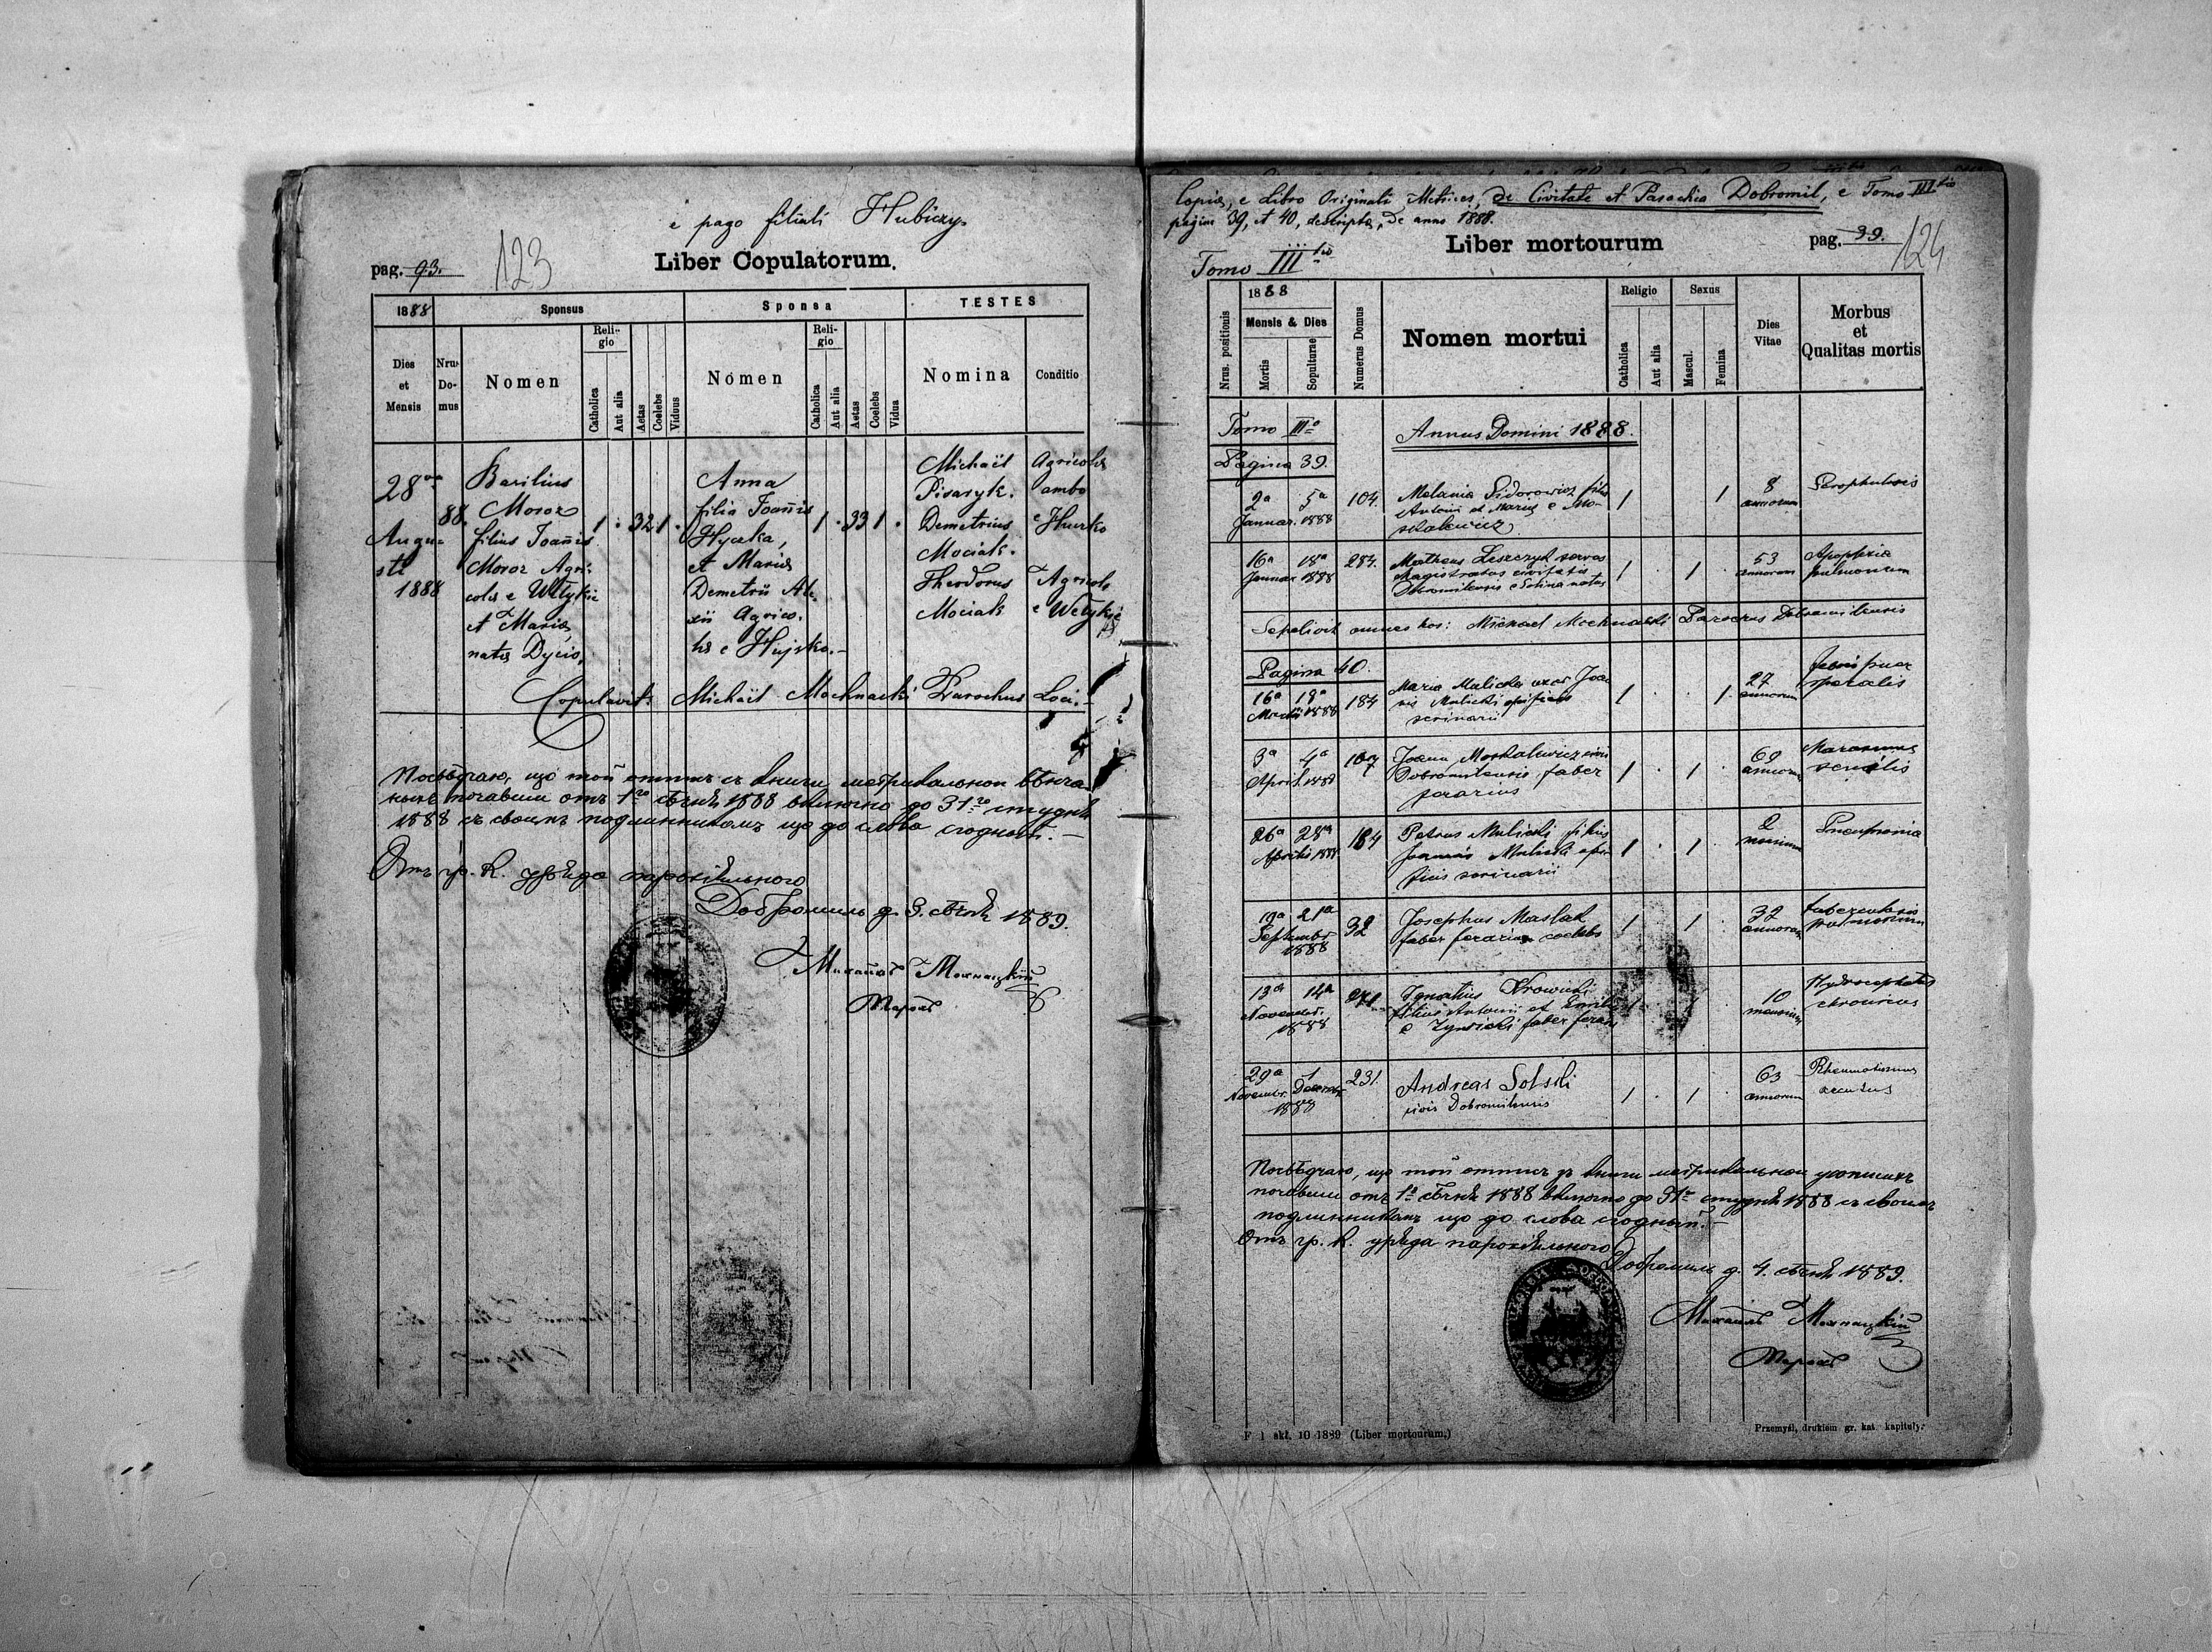 e pago filiali Hubiczy
pag. 93.
123
Liber Copulatorum.
1888
Sponsus
Sponsa
TESTES
Dies et Mensis
Nrus Domus
Nomen
Religio
Catholica
Aut alia
Aetas
Coelebs
Viduus
Nomen
Religio
Catholica
Aut alia
Aetas
Coelebs
Vidua
Nomina
Conditio
28va
Augu=
sti
1888
88.
Basilius
Moroz
filius Joañis
Moroz Agri=
colae e Wełykie
et Maria
natae Dycio,
1 . 32 1 .
Anna
filia Joañis
Hyczka,
et Mariae
Demetrii Ale-
xii Agrico-
lae e Hujsko.-
1 . 33 1 .
Michaël
Pisaryk.
Demetrius
Mociak.
Theodorus
Mociak
Agricolae
ambo
e Hursko
Agricola
e Wełykie
Copulavit: Michaël Mochnacki Parochus Loci.-
Посвѣдчаю, що той отпис съ книги метрикальнои вѣнча-
ныхъ почавши отъ 1го сѣчня 1888 включно до 31го студня
1888 съ своимъ подлинникомъ що до слова згодный. —
Отъ гр. К. уряда парохіяльного
Добромиль д. 3. сѣчня 1889.
Михаилъ Мохнацкій
Парохъ
Copia, e Libro Originali Metrices, de Civitate et Parochia Dobromil, e Tomo IIItio
pagina 39, et 40, descripta, de anno 1888.
Tomo IIItio
Liber mortourum
pag. 39.
124
Nrus. positionis
1888
Mensis & Dies
Mortis
Sopulturae
Numerus Domus
Nomen mortui
Religio
Catholica
Aut alia
Sexus
Mascul.
Femina
Dies Vitae
Morbus
et
Qualitas mortis
Tomo IIIo
Annus Domini 1888.
Pagina 39.
2a 5a
Januar. 1888
104.
Melania Sidorowicz filia
Antonii et Maria e Mo-
skalewicz
1 1
8
annorum
Scrophulosis
16a 18a
Januar 1888
284.
Matheus Leszczyk servus
Magistratus civitatis
Dobromilensis e Solina natus
1 . 1 .
53
annorum
Apoplexia
pulmonum
Sepelivit omnes hos: Michael Mochnacki Parochus Dobromilensis
Pagina 40.
16a 18a
Martii 1888
184
Maria Malicka uxor Joan
nis Malicki opificis
scrinarii
1 . . 1 .
27
annorum
febris puer
peralis
3a 4a
April. 1888
107
Joann Moskalewicz civis
Dobromilensis faber
ferarius
1 . 1 .
69
annorum
Marasmus
senilis
26a 28a
Aprilis 1888
184
Petrus Malicki filius
Joannis Malicki opi-
ficis scrinarii
1 . 1 .
2
mensium
Pneumonia
19a 21a
September
1888
32
Josephus Maslak
faber ferarius coelebs
1 1 .
32
annorum
tuberculosis
pulmonum
13a 14a
Novembr.
1888
271
Ignatius Krowicki
filius Antonii et Emilia
e Zynticki faber ferari
1 1 .
10
mensium
Hydrocephalus
chronicus
29a 1
Novembr. Decembr
1888
231.
Andreas Solski
civis Dobromilensis
1 . 1 .
63
annorum
Rheumatismus
acutus
Посвѣдчаю, що той отпис зъ книги метрикальнои усопшихъ
почавши отъ 1го сѣчня 1888 включно до 31го студня 1888 съ своимъ
подлинникомъ що до слова згодный. —
Отъ гр. К. уряда парохіяльного
Добромиль д. 4. сѣчня 1889.
Михаилъ Мохнацкій
Парохъ
F 1 skł. 10 1889 (Liber mortourum.)
Przemyśl, drukiem gr. kat kapituły.